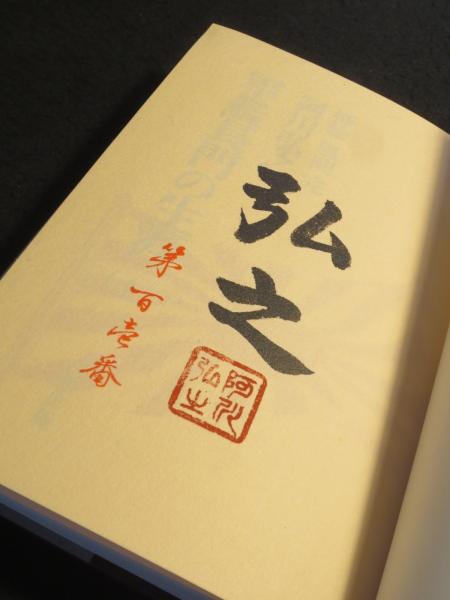 弘之
第百壱番
阿川
弘之